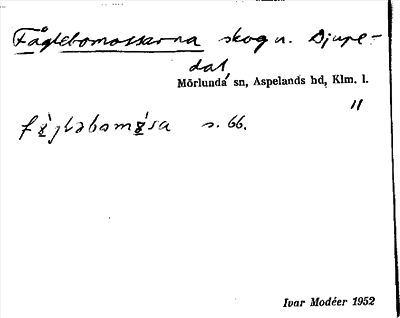 Fåglebomossarna skog u. Djupe-
dal
Mörlunda sn, Aspelands hd, Klm. l.
"
s. 66.
Ivar Modéer 1952